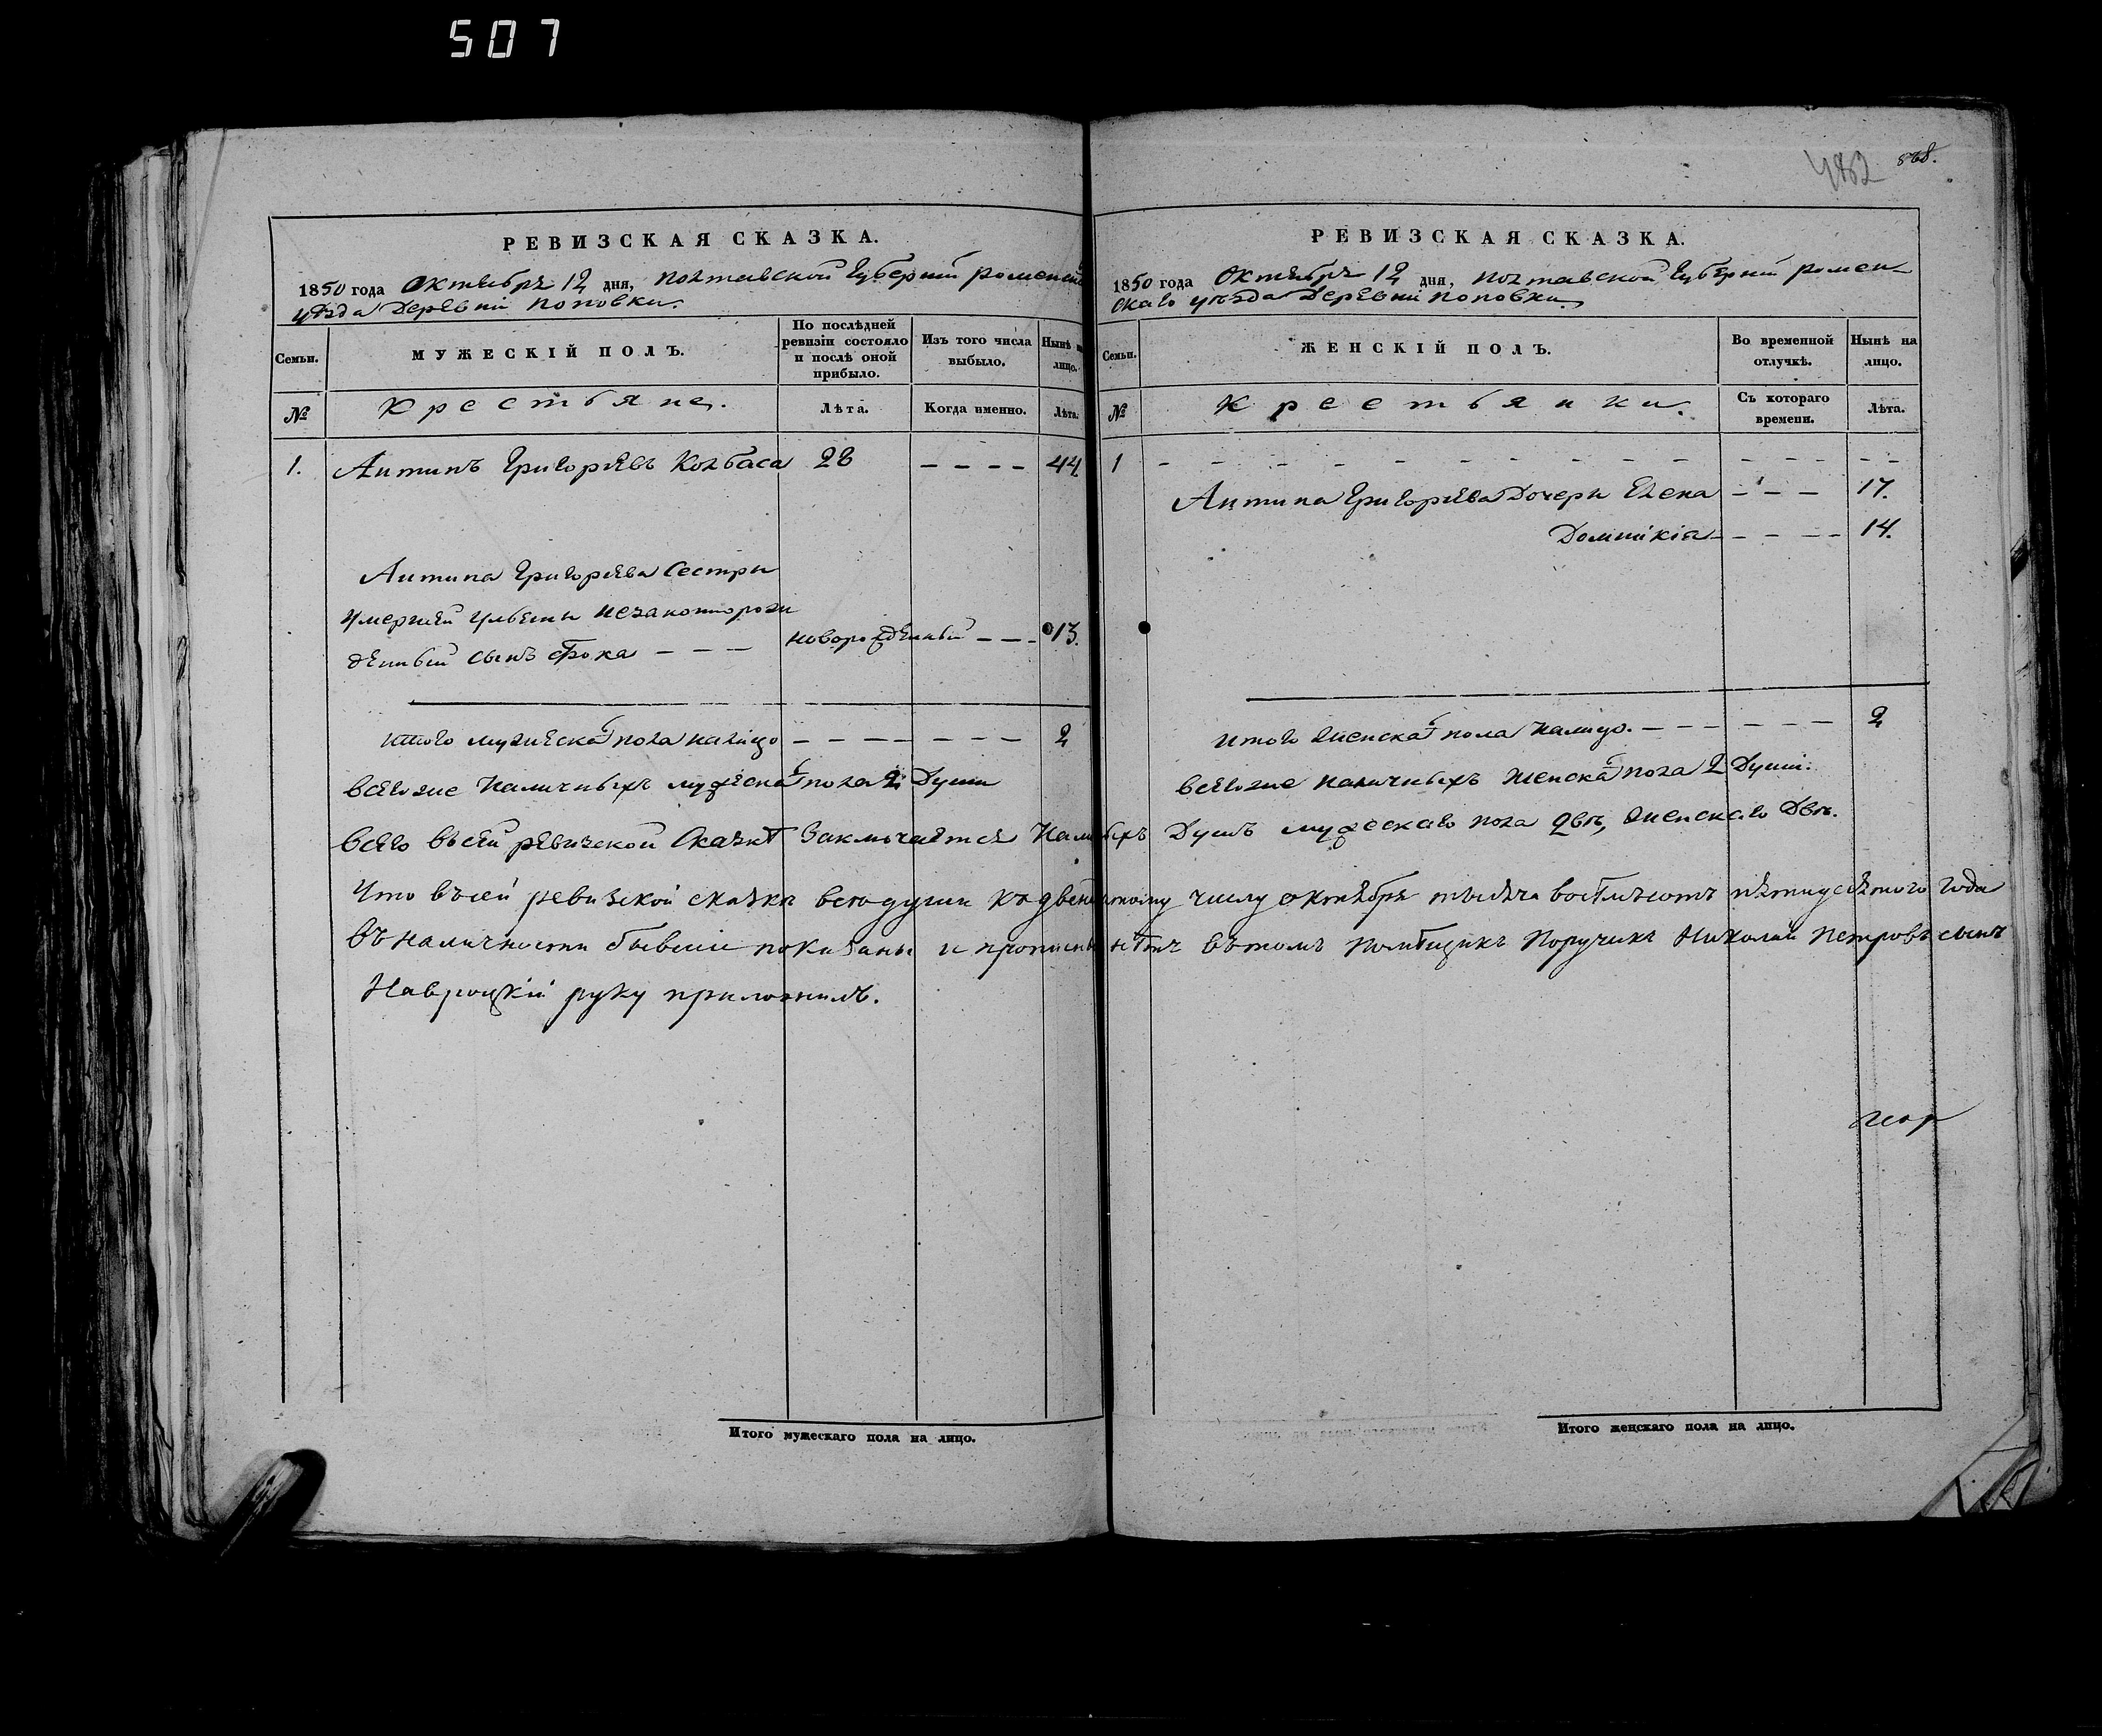 507
482 868.
РЕВИЗСКАЯ СКАЗКА.
1850 года Октября 12 дня, Полтавской Губернии Роменска
уѣзда Деревни Поповки.
Семьи.
МУЖЕСКІЙ ПОЛЪ.
По послѣдней
ревизіи состояло
и послѣ оной
прибыло.
Изъ того числа
выбыло.
Нынѣ на
лицо.
№
Крестьяне.
Лѣта.
Когда именно.
Лѣта.
1. Антипъ Григорьевъ Колбаса 28 – – – – 44
Антипа Григорьева Сестры
умершей Ульяны незаконнорож
денный сынъ Фока – – – новорожденный – – – 13.
Итого мужеска пола налицо – – – – – – – 2
Всего же наличныхъ мужеска пола 2 Души
РЕВИЗСКАЯ СКАЗКА.
1850 года Октября 12 дня, Полтавской Губерніи Ромен-
скаго уѣзда Деревни Поповки
Семьи.
ЖЕНСКІЙ ПОЛЪ.
Во временной
отлучкѣ.
Нынѣ на
лицо.
№
Крестьянки.
Съ котораго
времени.
Лѣта.
1 – – – – – – – – – – – – – – – –
Антипа Григорьева Дочери Елена – – – 17.
Домникія – – – – – 14.
Итого женска пола налицо. – – – – – – 2
Всего же наличныхъ женска пола 2 Души.
Всего въ сей ревизской Сказкѣ Заключается Душъ мужескаго пола двѣ, женскаго Двѣ.
Что въ сей ревизской сказкѣ все души къ двенадцатому числу октября тысяча восѣмьсотъ пятидесятого года
въ наличности бывшіе показаны и нѣтъ въ томъ Помѣщикъ Поручикъ Николай Петровъ сынъ
Навроцкій руку приложилъ.
Итого мужескаго пола на лицо.
Итого женскаго пола на лицо.